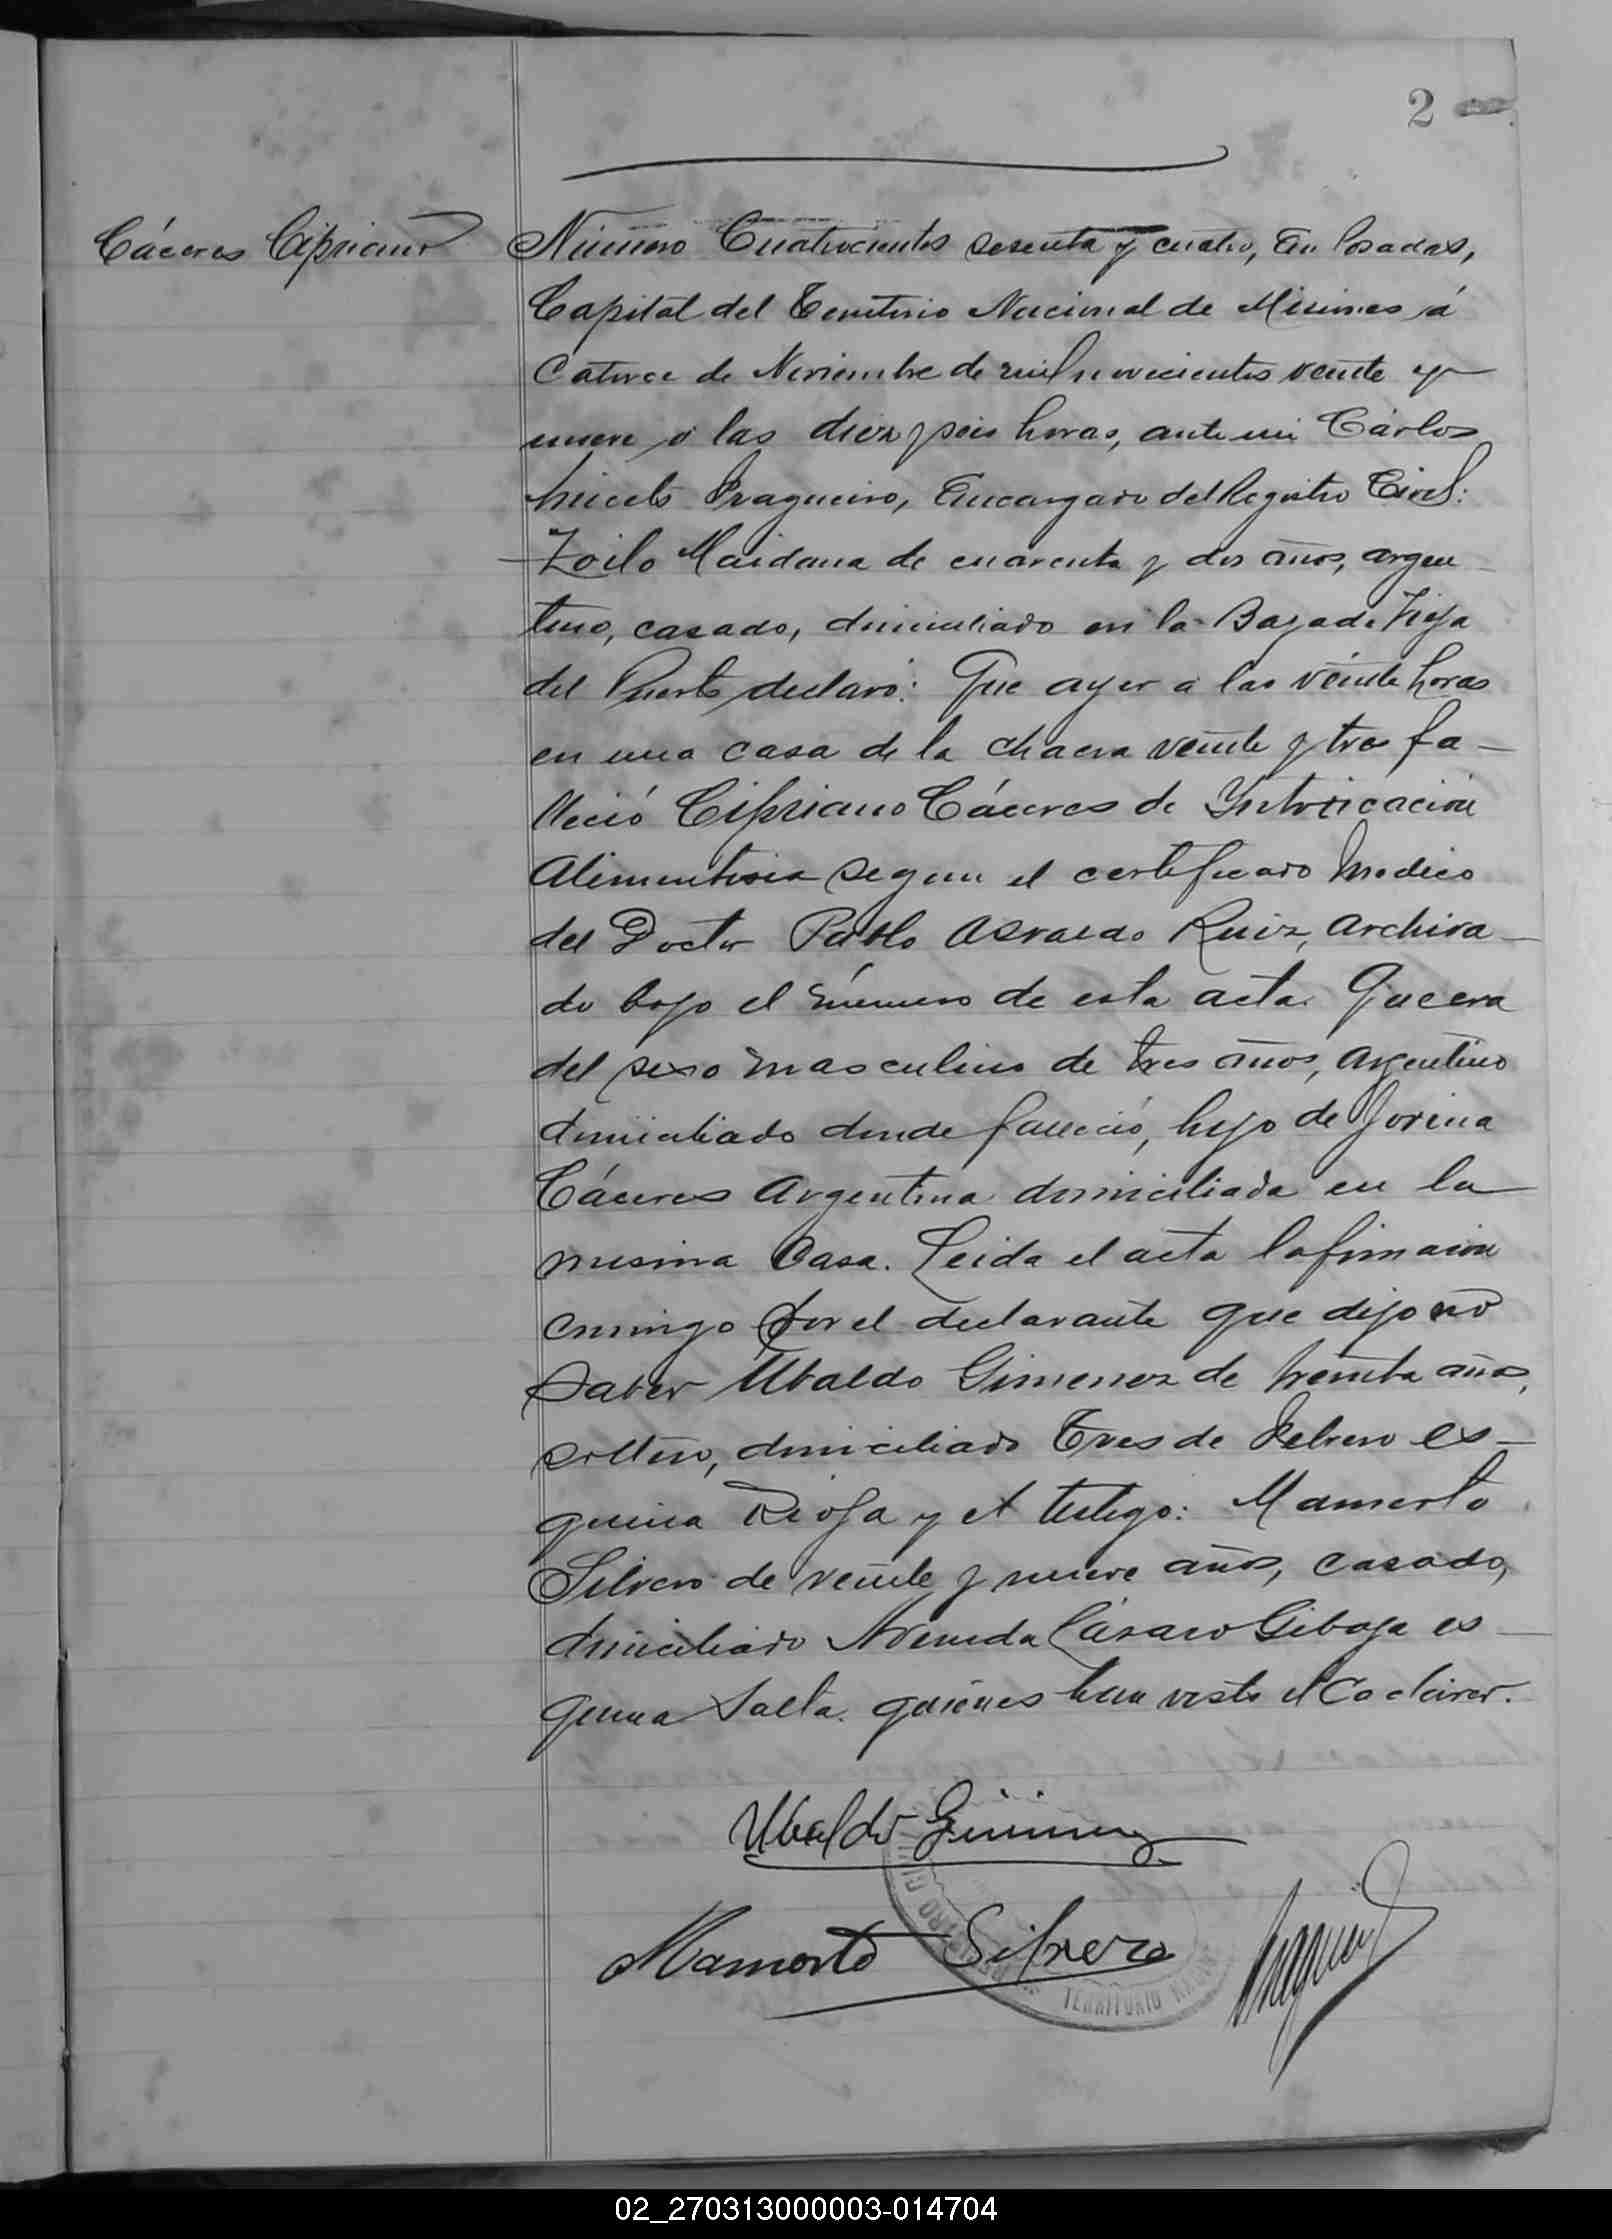 2
Cáceres Cipriano
Número Cuatrocientos sesenta y cuatro, En Posadas,
Capital del Territorio Nacional de Misiones á
Catorce de Noviembre de mil novecientos veinte y
nueve á las diez y seis horas, ante mi Cárlos
Aniceto Fragueiro, Encargado del Registro Civil:
Zoilo Maidana de cuarenta y dos años, argen-
tino, casado, domiciliado en la Bajada Vieja
del Puerto declaró: Que ayer a las veinte horas
en una casa de la chacra veinte y tres fa-
lleció Cipriano Cáceres de Intoxicación
Alimenticia segun el certificado Medico
del Doctor Pablo Osvaldo Ruiz, archiva-
do bajo el número de esta acta. Que era
del sexo masculino de tres años, argentino
domiciliado donde falleció, hijo de Jovina
Cáceres Argentina domiciliada en la
misma Casa. Leida el acta la firmaron
conmigo por el declarante que dijo no
saber Ubaldo Gimenez de treinta años,
soltero, domiciliado Tres de Febrero es-
quina Rioja y el testigo: Mamerto
Silvero de veinte y nueve años, casado,
domiciliado Avenida Lázaro Giboja es-
quina Salta. quienes han visto el Cadáver.
Ubaldo Gimenez
Mamerto Silvero
Fragueiro
REGISTRO CIVIL
TERRITORIO NACION
02_270313000003-014704